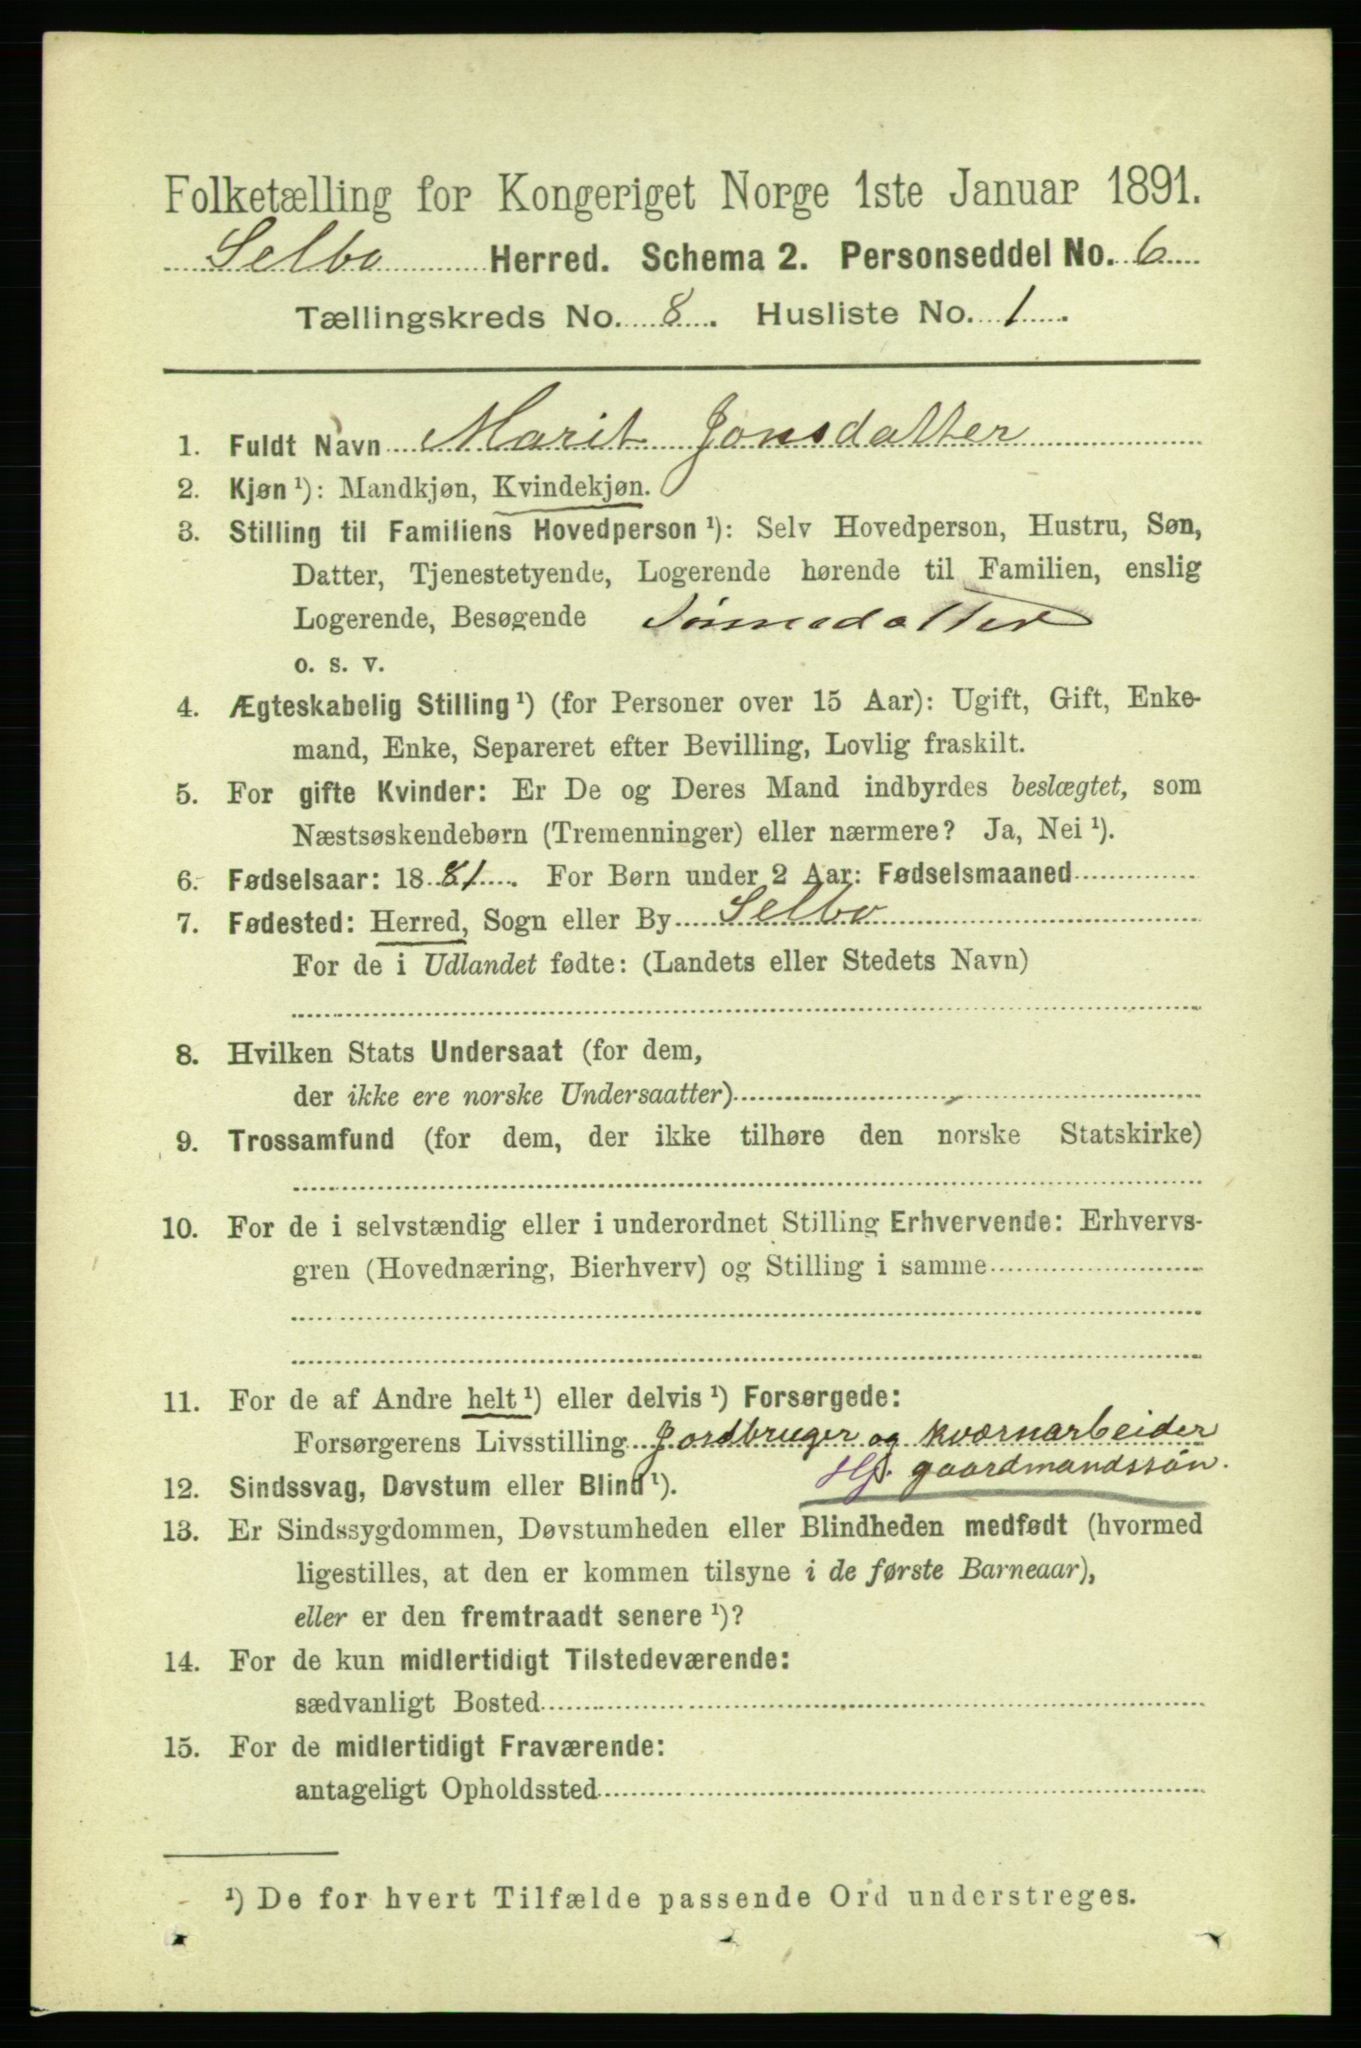 Folketælling for Kongeriget Norge 1ste Januar 1891.
Selbo Herred. Schema 2. Personseddel No. 6
Tællingskreds No. 8. Husliste No. 1.
1. Fuldt Navn Marit Jonsdatter
2. Kjøn ¹): Mandkjøn, Kvindekjøn.
3. Stilling til Familiens Hovedperson ¹): Selv Hovedperson, Hustru, Søn,
Datter, Tjenestetyende, Logerende hørende til Familien, enslig
Logerende, Besøgende Sønnedatter
o. s. v.
4. Ægteskabelig Stilling ¹) (for Personer over 15 Aar): Ugift, Gift, Enke-
mand, Enke, Separeret efter Bevilling, Lovlig fraskilt.
5. For gifte Kvinder: Er De og Deres Mand indbyrdes beslægtet, som
Næstsøskendebørn (Tremenninger) eller nærmere? Ja, Nei ¹).
6. Fødselsaar: 1881. For Børn under 2 Aar: Fødselsmaaned
7. Fødested: Herred, Sogn eller By Selbo
For de i Udlandet fødte: (Landets eller Stedets Navn)
8. Hvilken Stats Undersaat (for dem,
der ikke ere norske Undersaatter)
9. Trossamfund (for dem, der ikke tilhøre den norske Statskirke)
10. For de i selvstændig eller i underordnet Stilling Erhvervende: Erhvervs-
gren (Hovednæring, Bierhverv) og Stilling i samme
11. For de af Andre helt ¹) eller delvis ¹) Forsørgede:
Forsørgerens Livsstilling Jordbruger og kværnarbeider
Hp. gaardmandssøn.
12. Sindssvag, Døvstum eller Blind ¹).
13. Er Sindssygdommen, Døvstumheden eller Blindheden medfødt (hvormed
ligestilles, at den er kommen tilsyne i de første Barneaar),
eller er den fremtraadt senere ¹)?
14. For de kun midlertidigt Tilstedeværende:
sædvanligt Bosted
15. For de midlertidigt Fraværende:
antageligt Opholdssted
¹) De for hvert Tilfælde passende Ord understreges.